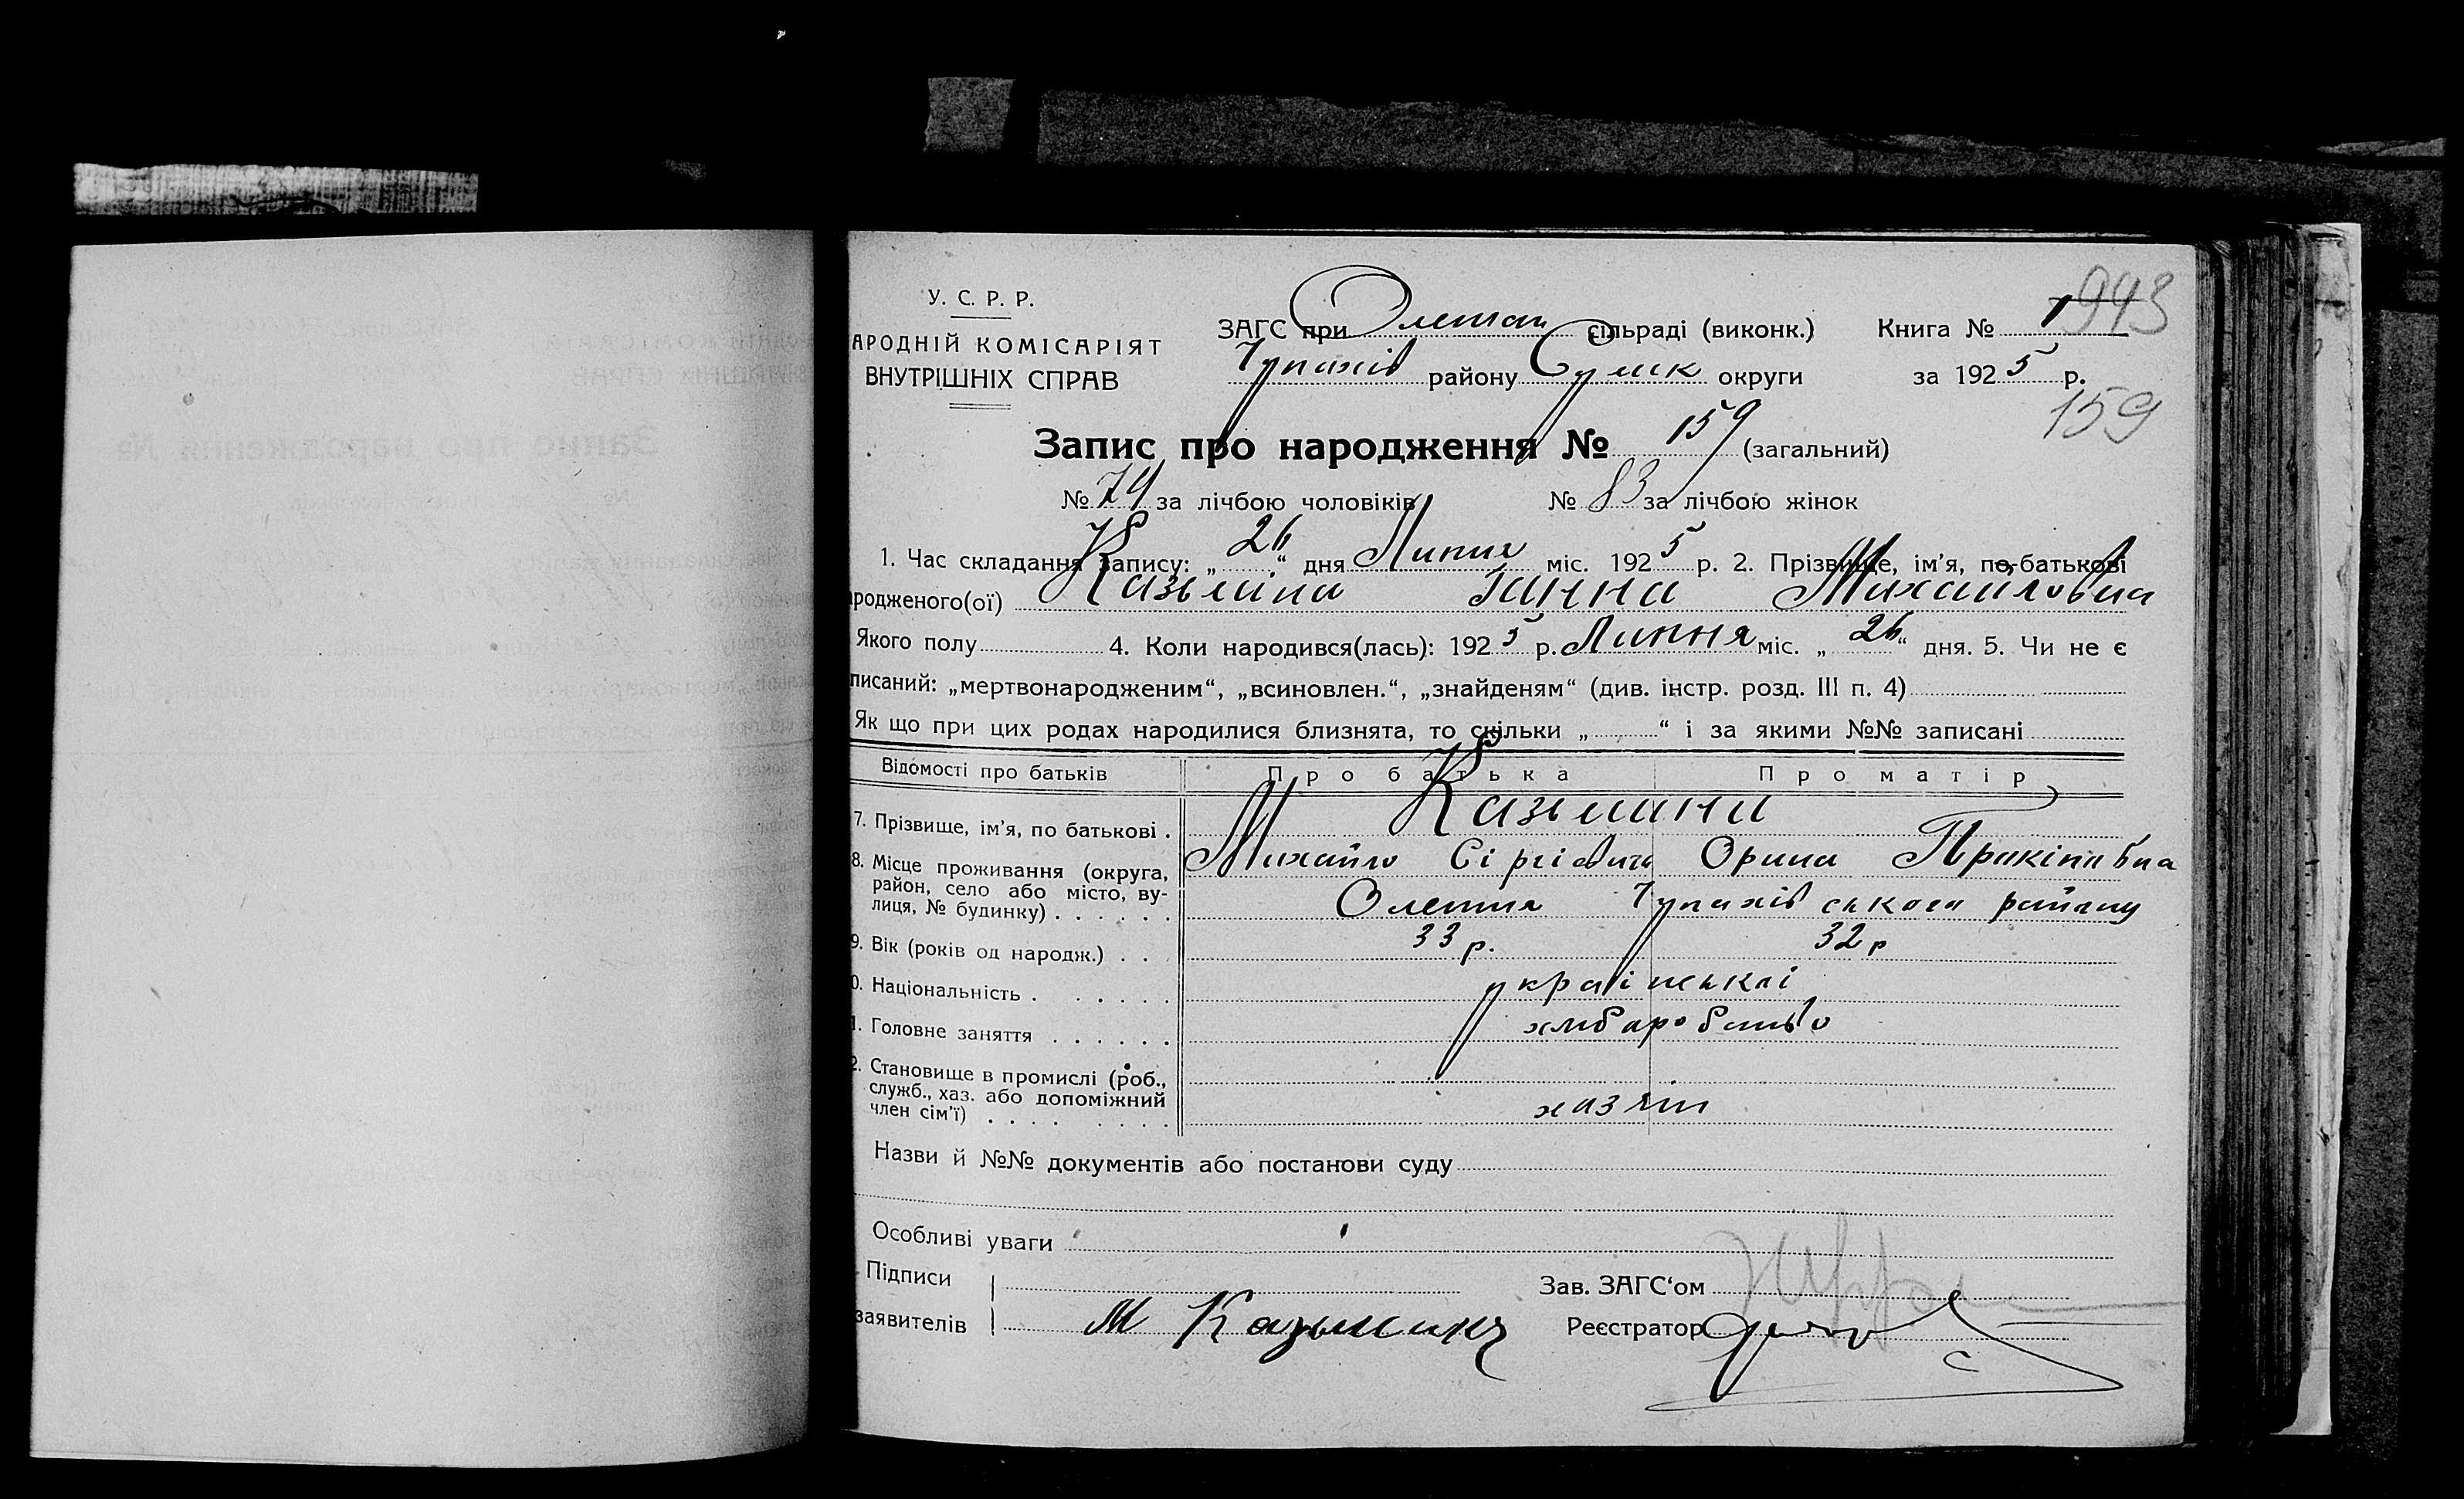 У. С. Р. Р.
АРОДНІЙ КОМІСАРІЯТ
ВНУТРІШНІХ СПРАВ
ЗАГС при Олешан сільраді (виконк.)
Чупахів району Сумск округи
Книга № 1 943
за 1925 р.
159
Запис про народження № 159 (загальний)
№ 74 за лічбою чоловіків № 83 за лічбою жінок
1. Час складання запису: „26“ дня Липня міс. 1925 р. 2. Прізвище, ім’я, по-батькові
родженого(ої) Казьміна Ганна Михайловна
Якого полу 4. Коли народився(лась): 1925 р. Липня міс. „26“ дня. 5. Чи не є
писаний: „мертвонародженим“, „всиновлен.“, „знайденям“ (див. інстр. розд. III п. 4)
Як що при цих родах народилися близнята, то скільки „ “ і за якими №№ записані
Відомості про батьків Про батька Про матір
7. Прізвище, ім’я, по батькові . Казьмини
Михайло Сіргієвич Орина Пракіпівна
8. Місце проживання (округа,
район, село або місто, ву-
лиця, № будинку) . . . . . . Олешня Чупахівського району
9. Вік (років од народж.) . . 33 р. 32 р
0. Національність . . . . . . української
1. Головне заняття . . . . . . хліборобство
2. Становище в промислі (роб.,
служб., хаз. або допоміжний
член сім’ї) . . . . . . . . хазяїн
Назви й №№ документів або постанови суду
Особливі уваги
Підписи
заявителів М Казьминъ
Зав. ЗАГС‘ом
Реєстратор